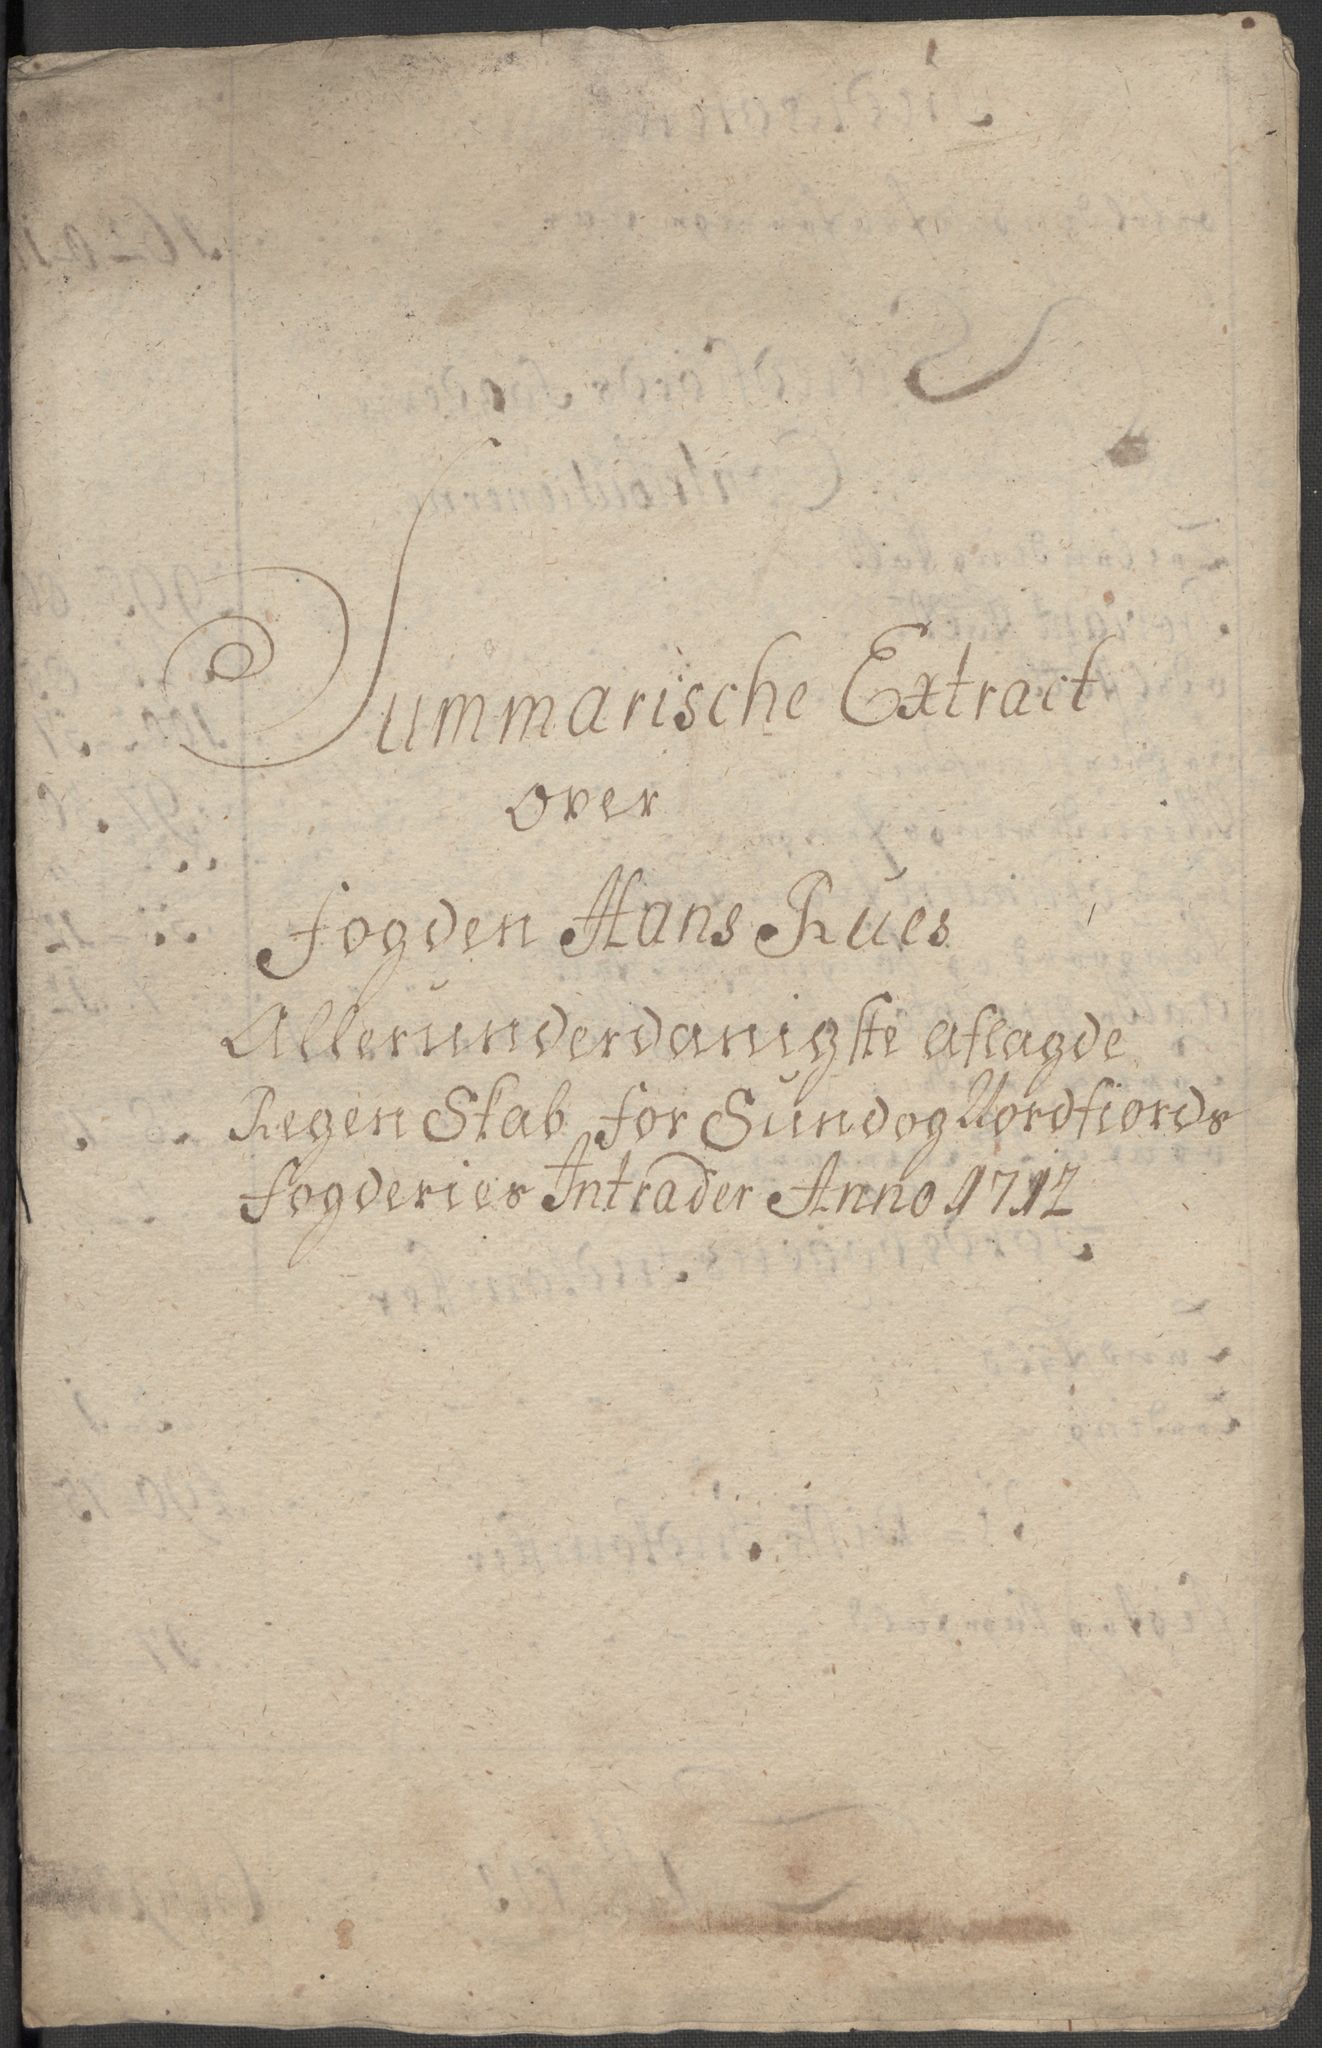 Summarische Extract
over
fogden Hans Rues
Allerunderdanigste aflagde
RegenSkab for Sundog Nordfiords
fogderies Intrader Anno 1712